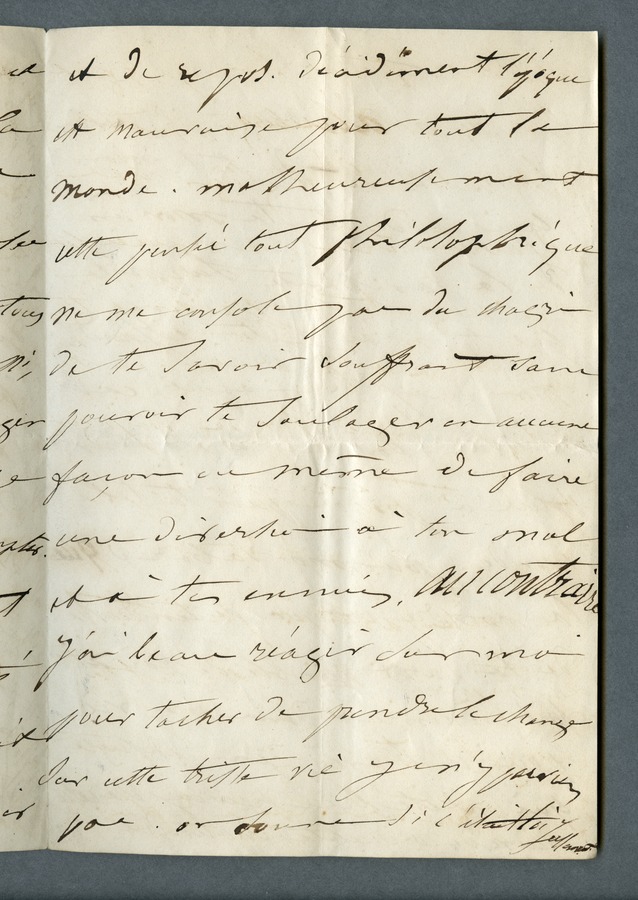 et de repos. décidément l'époque
est mauvaise pour tout le
monde. malheureusement
cette pensée tout philosophique
ne me console pas du chagrin
de te savoir souffrant sans
pouvoir te soulager en aucune
façon ou même de faire
une diversion à ton mal
et à tes ennuis, au contraire
j'ai beau réagir sur moi
pour tacher de prendre le change
sur cette triste vie je n'y parviens
pas. on donne si c'était